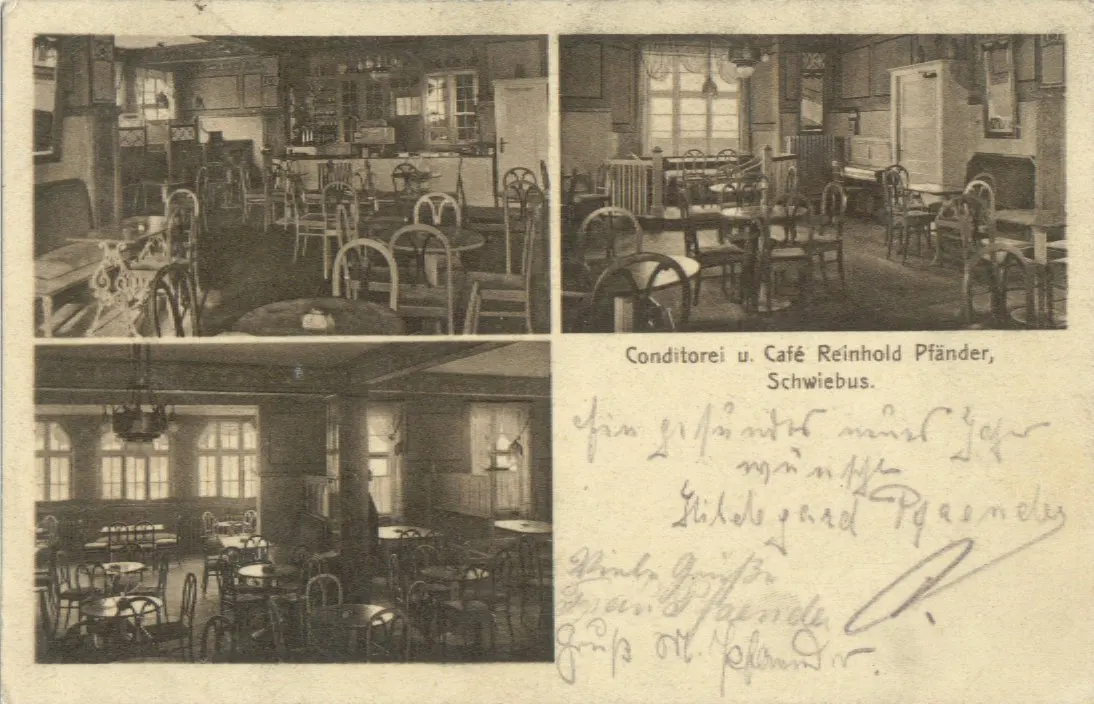 Conditorei u. Café Reinhold Pfänder,
Schwiebus.
Ein gesundes neues Jahr
wünscht
Hildegard Pfaender
Viele Grüße
Frau Pfaender
Gruß M. Pfaender.